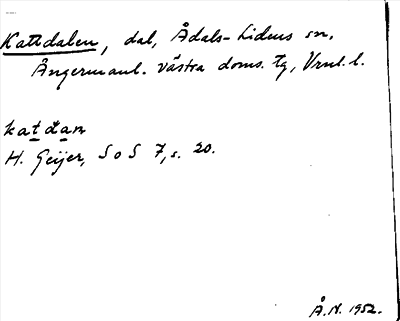 Kattdalen, dal, Ådals-Lidens sn,
Ångermanl. västra doms. tg, Vrnl. l.
katdan
H. Geijer, S o S 7, s. 20.
Å.N. 1952.